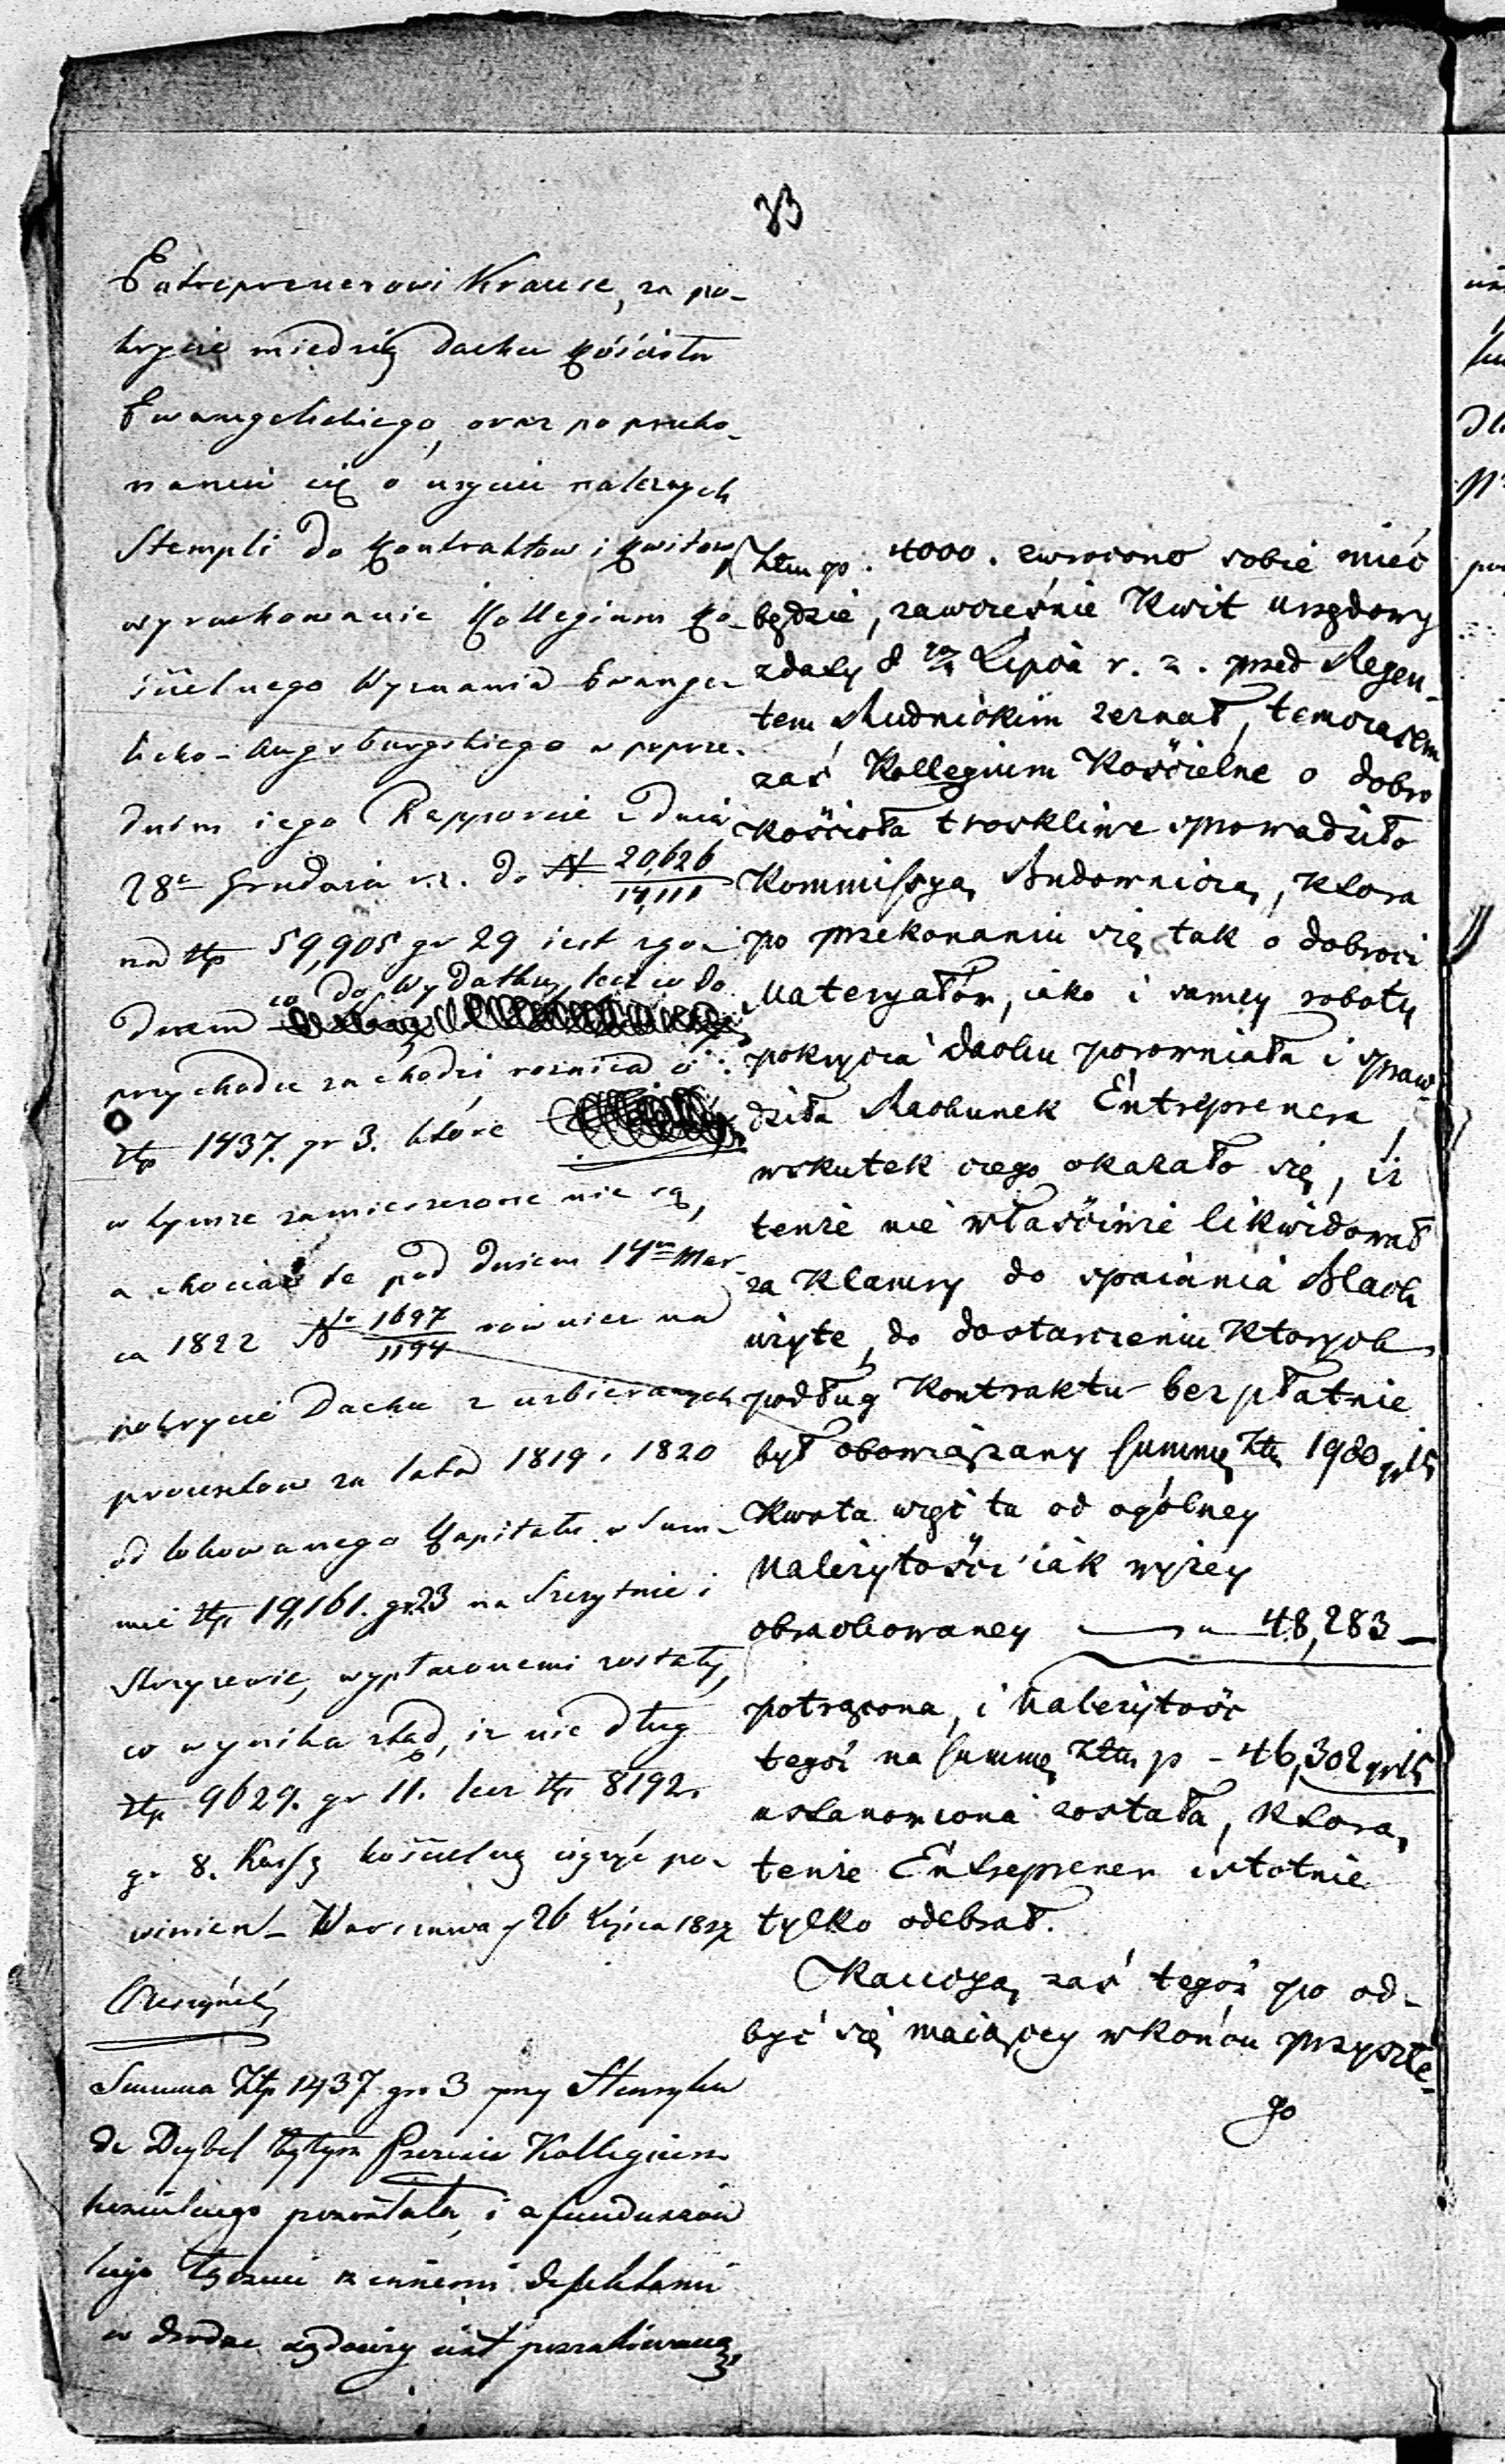 33
Entreprenerowi Krause, za po-
krycie miedzią Dachu Kościoła
Ewangelickiego, oraz po przeko-
naniu się o użyciu należnych
Stempli do Kontraktow i Kwitow,
wyrachowanie Kollegium Ko-
ścielnego Wyznania Ewange-
licko-Augsburgskiego w poprze-
dnim iego Rapporcie z Dnia
28 Grudnia r.z. do N. 20,626/14,111
na złp 59,905 gr 29 iest zgo-
dnem co do Wydatku, lecz co do
przychodu zachodzi roznica o
złp 1437. gr 3. które
w tymże zamieszczone nie są,
a chociaż te pod dniem 14 Mar-
ca 1822 No 1697/1194 rownież na
pokrycie Dachu z uzbieranych
procentow za lata 1819 i 1820
od lokowanego Kapitału w Sum-
mie złp 19,161. gr 23 na Szczytnie i
Skrzyszewie, wypłaconemi zostały,
co wynika ztąd, iż nie dług
złp 9629. gr 11. lecz złp 8192.
gr 8. Kassę kościelną ciążyć po-
winien. Warszawa d 26 Lipca
Summa Złp 1437 gr 3 przy
de Deybel byłym Prezesie Kollegium
kościelnego pozostała, i z funduszów
tego łącznie z innemi defektami
w drodze sądowey iest poszukiwaną.
Złtu p. 4000. zwrocono sobie mieć
będzie, zawcześnie Kwit urzędowy
zdały d Lipca r. z. przed Regen-
tem Rudnickim zeznał, temczasem
zaś Kollegium Kościelne o dobro
Kościoła troskliwe sprowadziło
Kommissyą Budowniczą, Ktora
po przekonaniu się tak o dobroci
Materyałów, iako i samey roboty
pokrycia dachu porowniała i spraw-
dziła Rachunek Entreprenera,
wskutek czego okazało się, iż
tenże nie właściwie likwidował
za Klamry do spaiania Blach
użyte, do dostarczeniu Ktorych
podług Kontraktu bezpłatnie
był obowiązany summę Złtu 1980 gr 15
Kwota więc ta od ogólney
Należytości iak wyżey
obrachowaney — 48,283 —
potrącona, i Należytość
tegoż na summę Złtu p - 46,302 gr 15
ustanowiona została, Ktorą
tenże Entreprener istotnie
tylko odebrał.
Kaucyą zaś tegoż po od-
być się maiącey wkońcu przyszłe-
go